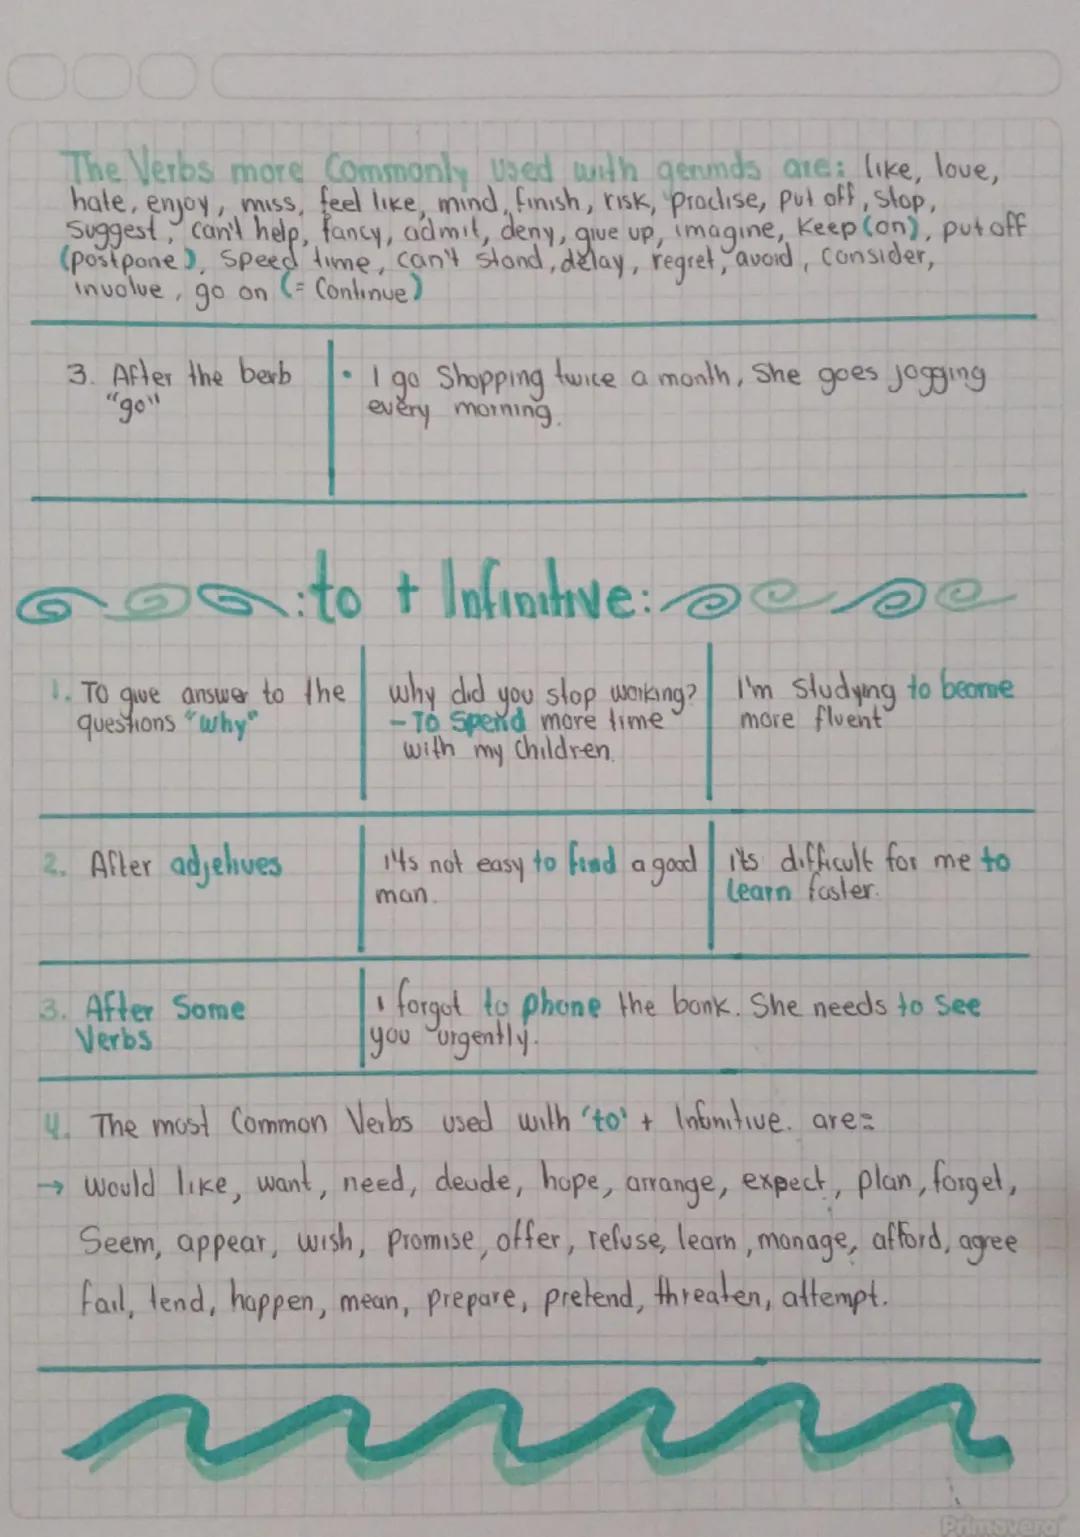 The Verbs more Commonly Used with gerunds are: like, love,
hate, enjoy, miss, feel like, mind, finish, risk, practise, put off, stop,
suggest, can't help, fancy, admit, deny, give up, imagine, Keep (on), put off
(postpone), Speed time, can't stand, delay, regret, avoid, Consider,
involve, go on (= Continue)
3. After the berb
"go"
• I go Shopping twice a month, She goes jogging
every morning.
:to + Infinitive:
1. To give answer to the
questions "why"
why did you stop working?
- To Spend more time
with my Children.
I'm Studying to become
more fluent
2. After adjetives
it's not easy to find a good
man.
it's difficult for me to
Learn faster.
3. After Some
Verbs
I forgot to phone the bank. She needs to See
you urgently.
4. The most Common Verbs used with 'to' + Infinitive. are=
→ would like, want, need, decide, hope, arrange, expect, plan, forget,
Seem, appear, wish, promise, offer, refuse, learn, manage, afford, agree
fail, tend, happen, mean, prepare, pretend, threaten, attempt.
Primavera